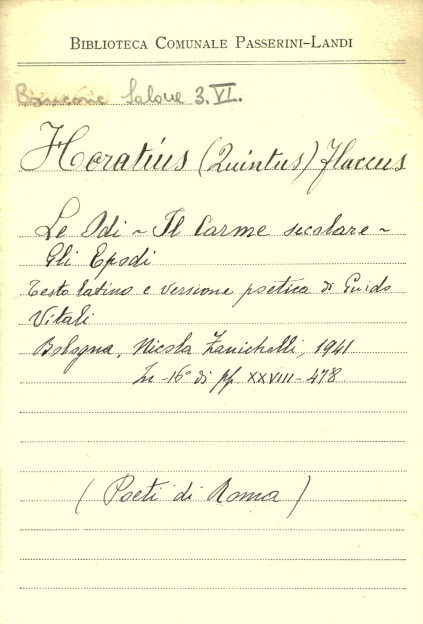 BIBLIOTECA COMUNALE PASSERINI-LANDI
Salone 3.VI.
Horatius (Quintus) Flaccus
Le Odi ~ Il Carme secolare ~
Gli Epodi
Testo latino e versione poetica di Guido
Vitali
Bologna, Nicola Zanichelli, 1941
In-16° di pp. XXVIII-478
(Poeti di Roma)